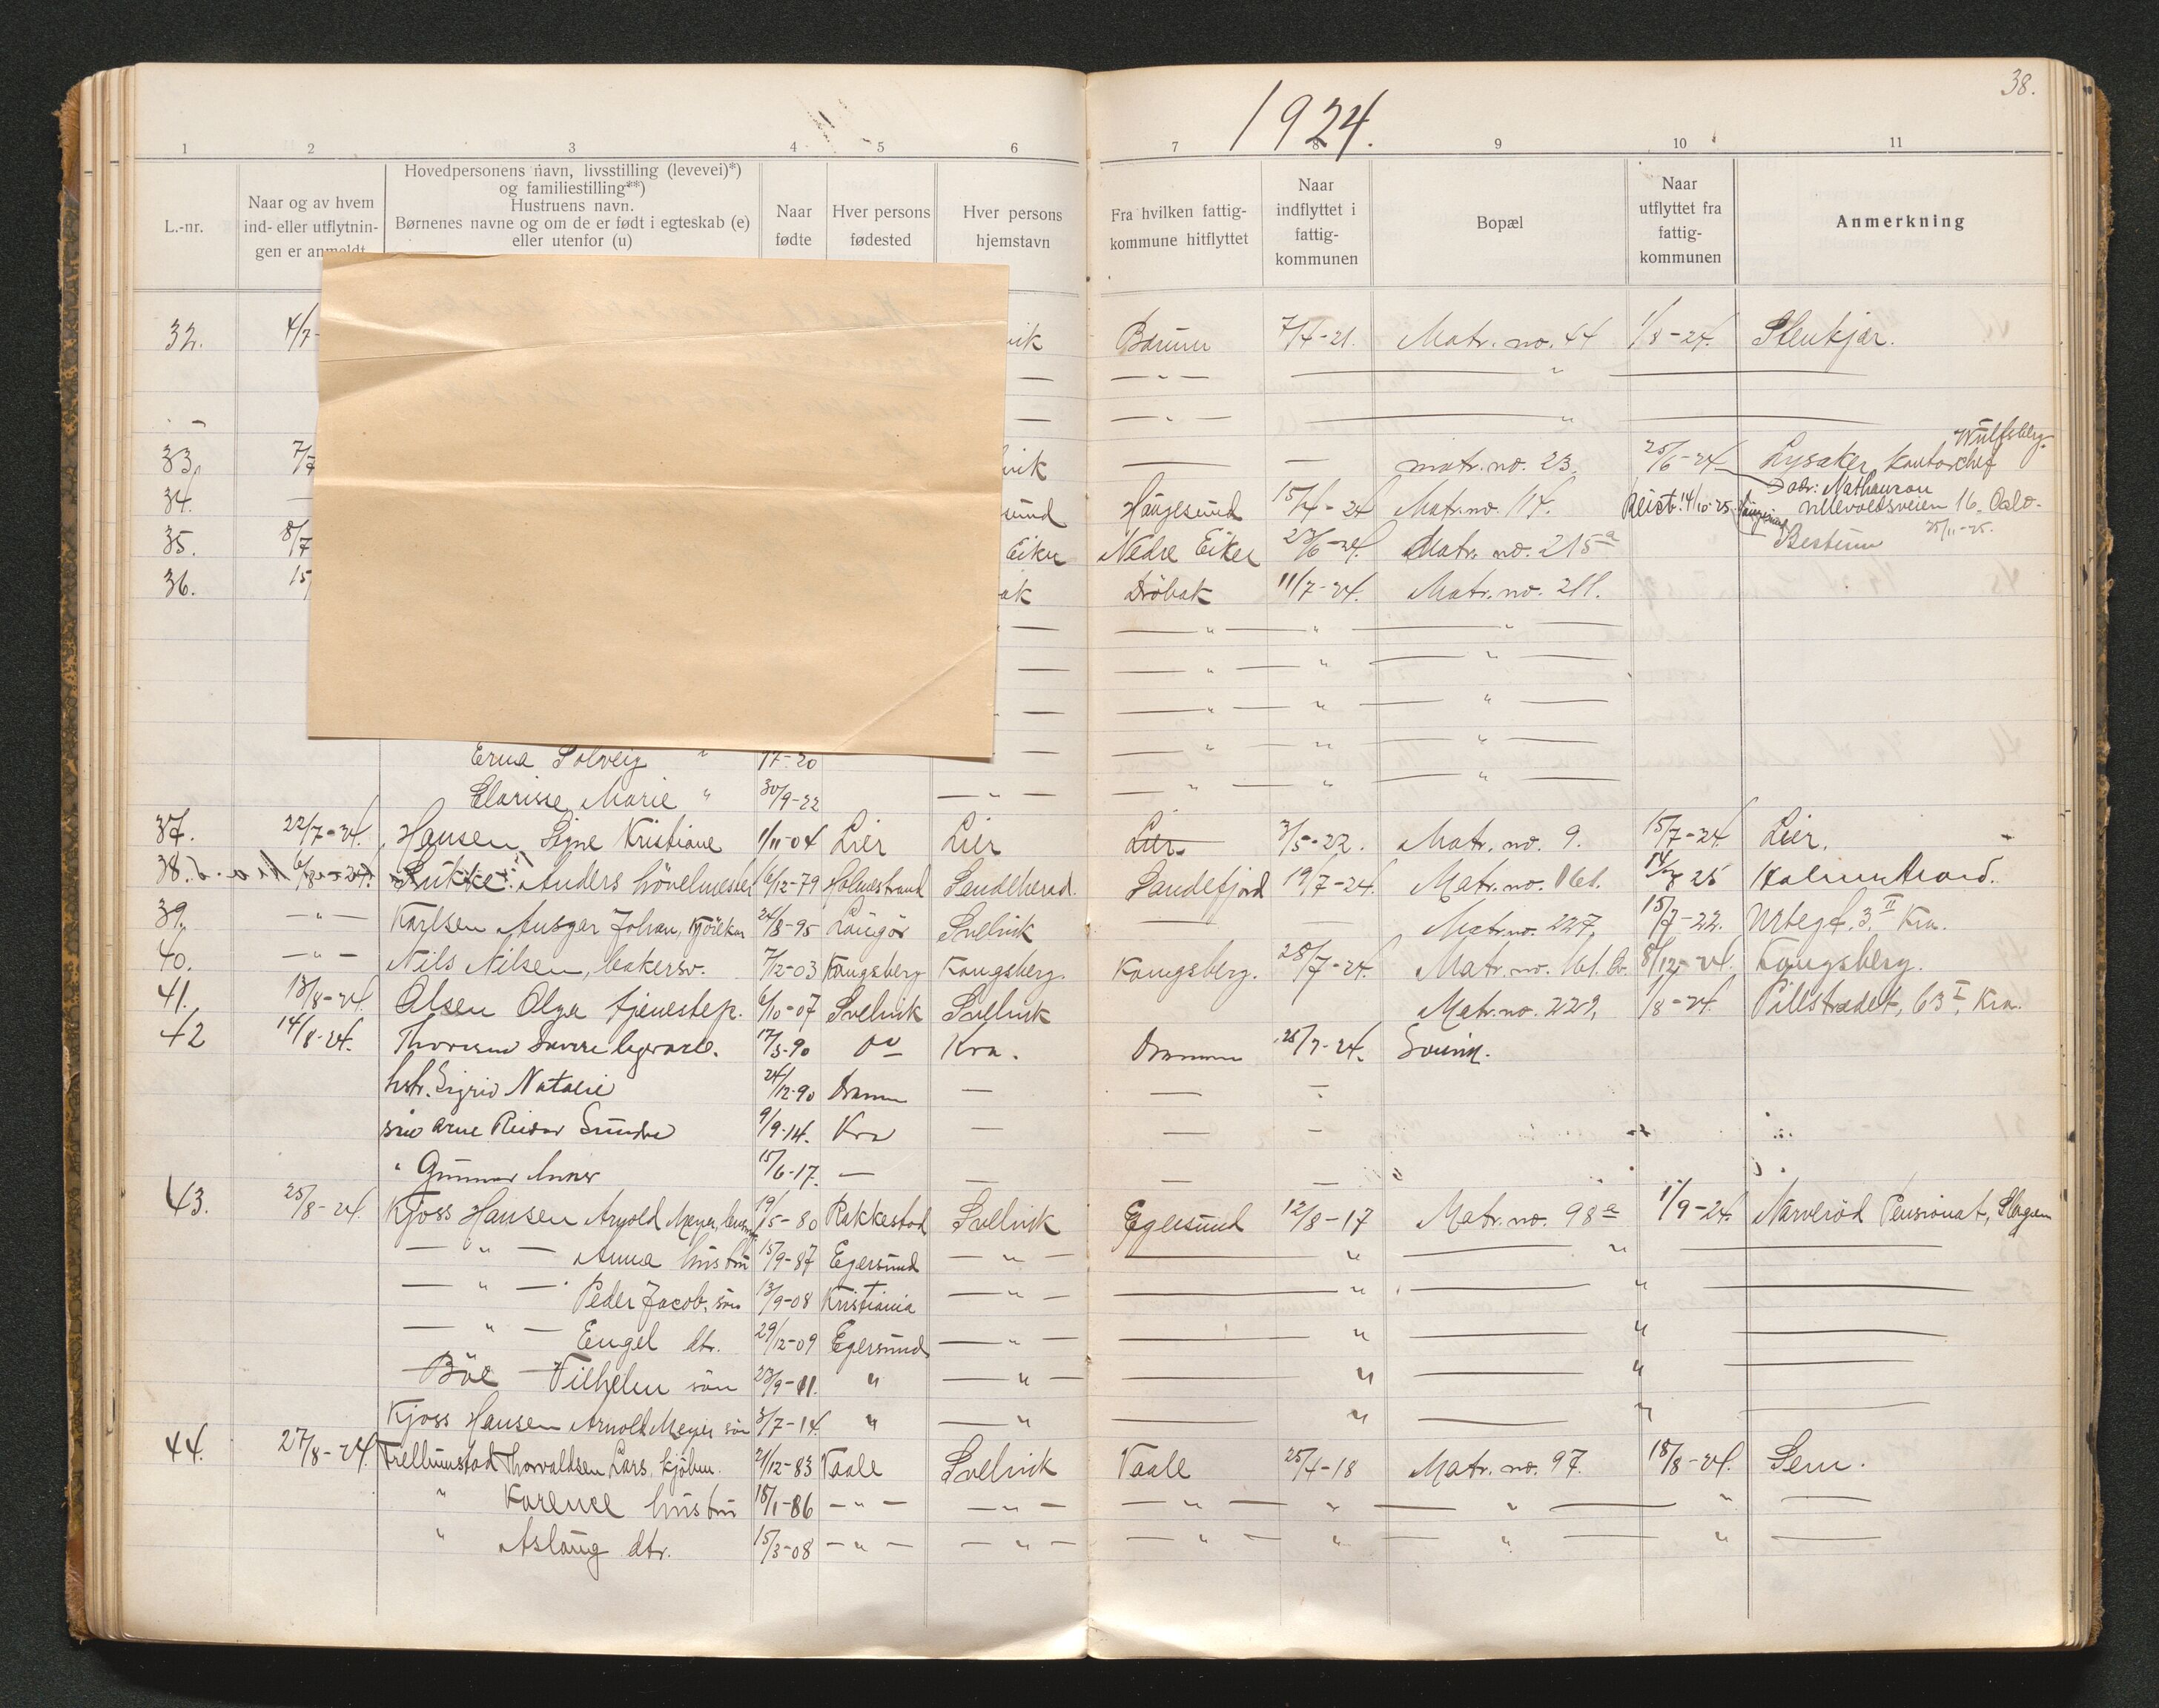 38.
1924.
1 2 3 4 5 6 7 8 9 10 11
L.-nr.
Naar og av hvem
ind- eller utflytnin-
gen er anmeldt
Hovedpersonens navn, livsstilling (levevei)*)
og familiestilling**)
Hustruens navn.
Børnenes navne og om de er født i egteskab (e)
eller utenfor (u)
Naar
fødte
Hver persons
fødested
Hver persons
hjemstavn
Fra hvilken fattig-
kommune hitflyttet
Naar
indflyttet i
fattig-
kommunen
Bopæl
Naar
utflyttet fra
fattig-
kommunen
Anmerkning
32. 4/7- vik Bærum 7/4-21. Matr. no. 44 1/8-24. Stenkjær.
— — " — — " —
- — — " — — " —
33. 7/7 vik — — matr. no. 23. 25/6-24 Lysaker kontorchef Wulfsberg.
34. — sund Haugesund 15/4-24 Matr. no. 114. Reist 14/10-25 adr: Nathanson Ullevoldsveien 16. Oslo-
35. 8/7 Eiker Nedre Eiker 23/6-24. Matr. no. 215a Bestum 25/11-25.
36. 15/ ak Dröbak 11/7-24. Matr. no. 211.
— — " — " — " —
— — " — " — " —
— — " — " — " —
Erna Solveig " 17-20 — — " — " — " —
Clarisse Marie " 30/9-22 — " — — " — " — " —
37. 22/7-24. Hansen Signe Kristiane 1/11-04 Lier Lier Lier 3/5-22. Matr. no. 9. 15/7-24 Lier.
38. 6/8-24. Lükke: Anders hövelmester 6/12-79 Holmestrand Sandeherad. Sandefjord 19/7-24. Matr. no. 161. 14/8 25 Holmestrand.
39. — " — Karlsen Ansgar Johan, Kjörekar 24/8-95 Langör Svelvik — — Matr. no. 227, 15/7-22. Urtegt. 3 II Kra.
40. — " — Nils Nilsen, bakersv. 7/12-03 Kongsberg Kongsberg. Kongsberg. 28/7-24. Matr. no. 161. b. 8/12-24. Kongsberg.
41. 13/8-24. Olsen Olga tjenestep. 6/10-07 Svelvik Svelvik Matr. no. 229, 1/8-24. Pillestrædet, 63 I, Kra.
42 14/8-24. Thoresen Sverre 17/3-90 do Kra. Drammen 25/7-24.
hstr. Sigrid Natalie 24/12-90 Dramm — — —
sön Arne Reidar Sundre 9/9-14. Kra — — —
" Gunnar 15/6-17. — — — —
43. 25/8-24. Kjoss Hansen Arnold Meyer, 19/5-80 Rakkestad Svelvik Egersund 12/8-17 Matr. no. 98a 1/9-24. Narveröd Pensionat, Slagen
— " — Anna hustru 15/9-87 Egersund — " — — " — " —
— " — Peder Jacob, sön 13/9-08 Kristiania — " — — " — " —
— " — Engel dtr. 29/12-09 Egersund — " — — " — " —
Böe Vilhelm sön 23/9-11. " — " — — " — " —
Kjoss Hansen Arnold Meyer sön 3/7-14. " — " — " — " —
44. 27/8-24. Trellumstad Thorvaldsen Lars, kjöbm. 21/12-83 Vaale Svelvik Vaale 25/4-18 Matr. no. 97. 18/8-24. Sem.
" Karence hustru 18/1-86 — " — — " — — " — " — " — " —
" Aslaug dtr. 15/3-08 — " — — " — — " — " — " — " —